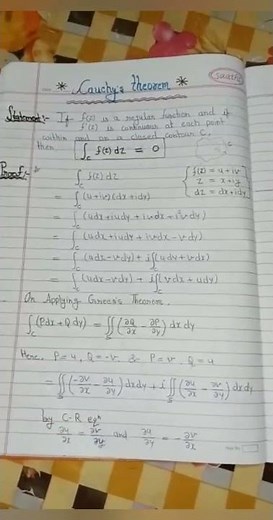 * Cauchy's theorem *
Statement:- If f(z) is a regular function and if
f'(z) is continuous at each point
within and on a closed contour C.
then ∫_C f(z) dz = 0
Proof:-
∫_C f(z) dz
f(z) = u+iv
z = x+iy
dz = dx+idy
= ∫_C (u+iv)(dx+idy)
= ∫_C (udx+iudy+ivdx+i²vdy)
= ∫_C (udx+iudy+ivdx-vdy)
= ∫_C (udx-vdy)+i∫(udy+vdx)
= ∫_C (udx-vdy)+i∫_C(vdx+udy)
On Applying Green's Theorem.
∫_C (Pdx+Qdy) = ∬_S (∂Q/∂x - ∂P/∂y) dx dy
Here, P=u, Q=-v & P=v, Q=u
= ∬_S (-∂v/∂x - ∂u/∂y) dx dy + i ∬_S (∂u/∂x - ∂v/∂y) dx dy
by C-R eqⁿ
∂u/∂x = ∂v/∂y and ∂u/∂y = -∂v/∂x